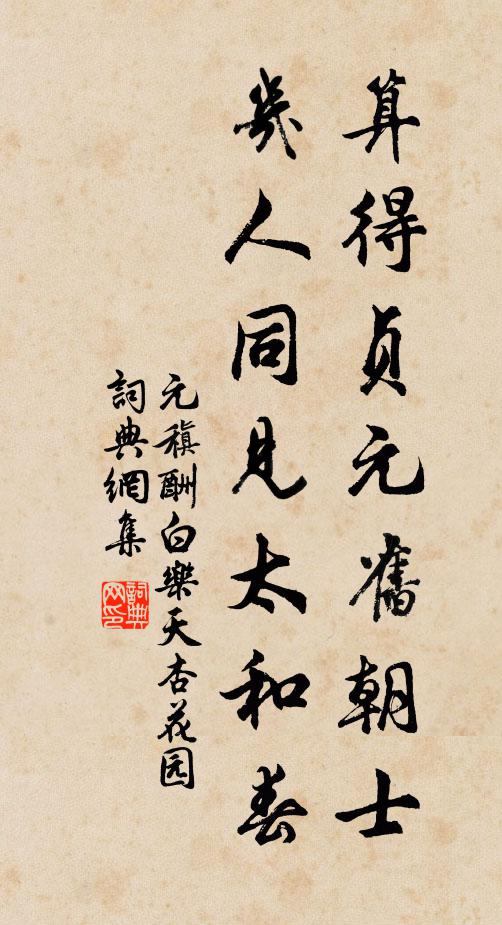 算得贞元舊朝士
幾人同見太和春
元稹酬白樂天杏花园
詞典網集
詞典网印